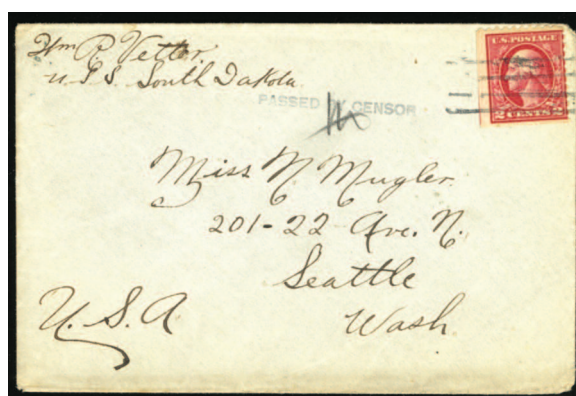 Wm R Vetter
U.S.S. South Dakota
PASSED BY CENSOR
U.S. POSTAGE
2 CENTS 2
Miss N Mugler
201-22 Ave. N.
Seattle
Wash
U.S.A